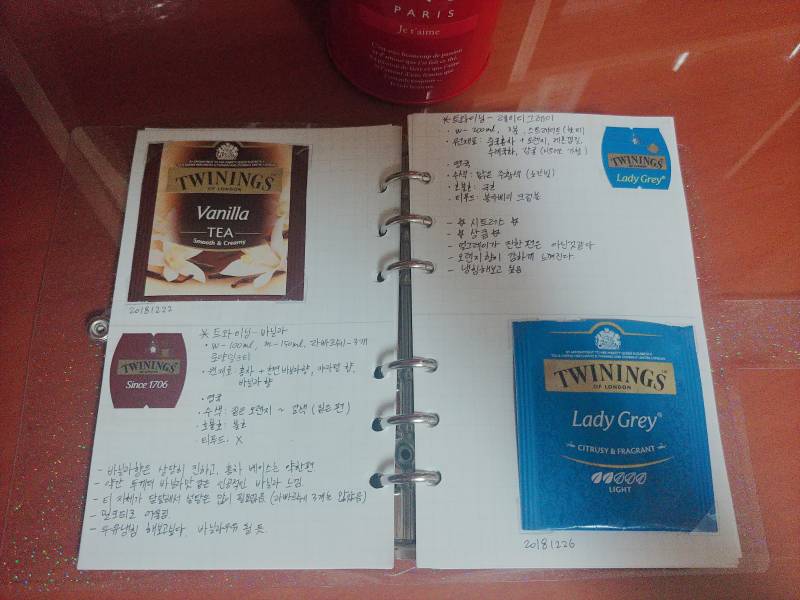 PARIS
Je t'aime
TWININGS
OF LONDON
Vanilla
TEA
Smooth & Creamy
20181222
TWININGS
Since 1706
※ 트와이닝 - 바닐라
· w-100ml, m-150ml, 라빠르쉐-3개
· 원재료: 홍차 + 천연바닐라향, 카라멜 향,
바닐라향
· 영국
· 수색: 짙은 오렌지 ~ 갈색 (짙은 편)
· 호불호: 불호
· 티푸드: X
- 바닐라향은 상당히 진하고, 홍차 베이스는 약한편
- 바닐라맛 같은 인공적인 바닐라 느낌
- 티 자체가 설탕은 많이 필요없음 (라빠르쉐 3개는 많았음)
- 밀크티로 어울림
- 우유냉침 해보고싶다. 바닐라우유 될 듯
※ 트와이닝 - 레이디그레이
· w-200ml, 스트레이트
· 원재료: 중국홍차 + 오렌지, 레몬껍질,
· 영국
· 수색: 맑은 주황색
· 호불호: 극호
· 티푸드: 블루베리 크럼블
- ※ 시트러스 ※
- ※ 상큼 ※
- 얼그레이가 진한 편은 아닌것같다
- 오렌지향이 강하게 느껴진다
- 냉침해보고 싶음
TWININGS
OF LONDON
Lady Grey®
TWININGS
OF LONDON
Lady Grey®
CITRUSY & FRAGRANT
LIGHT
20181226